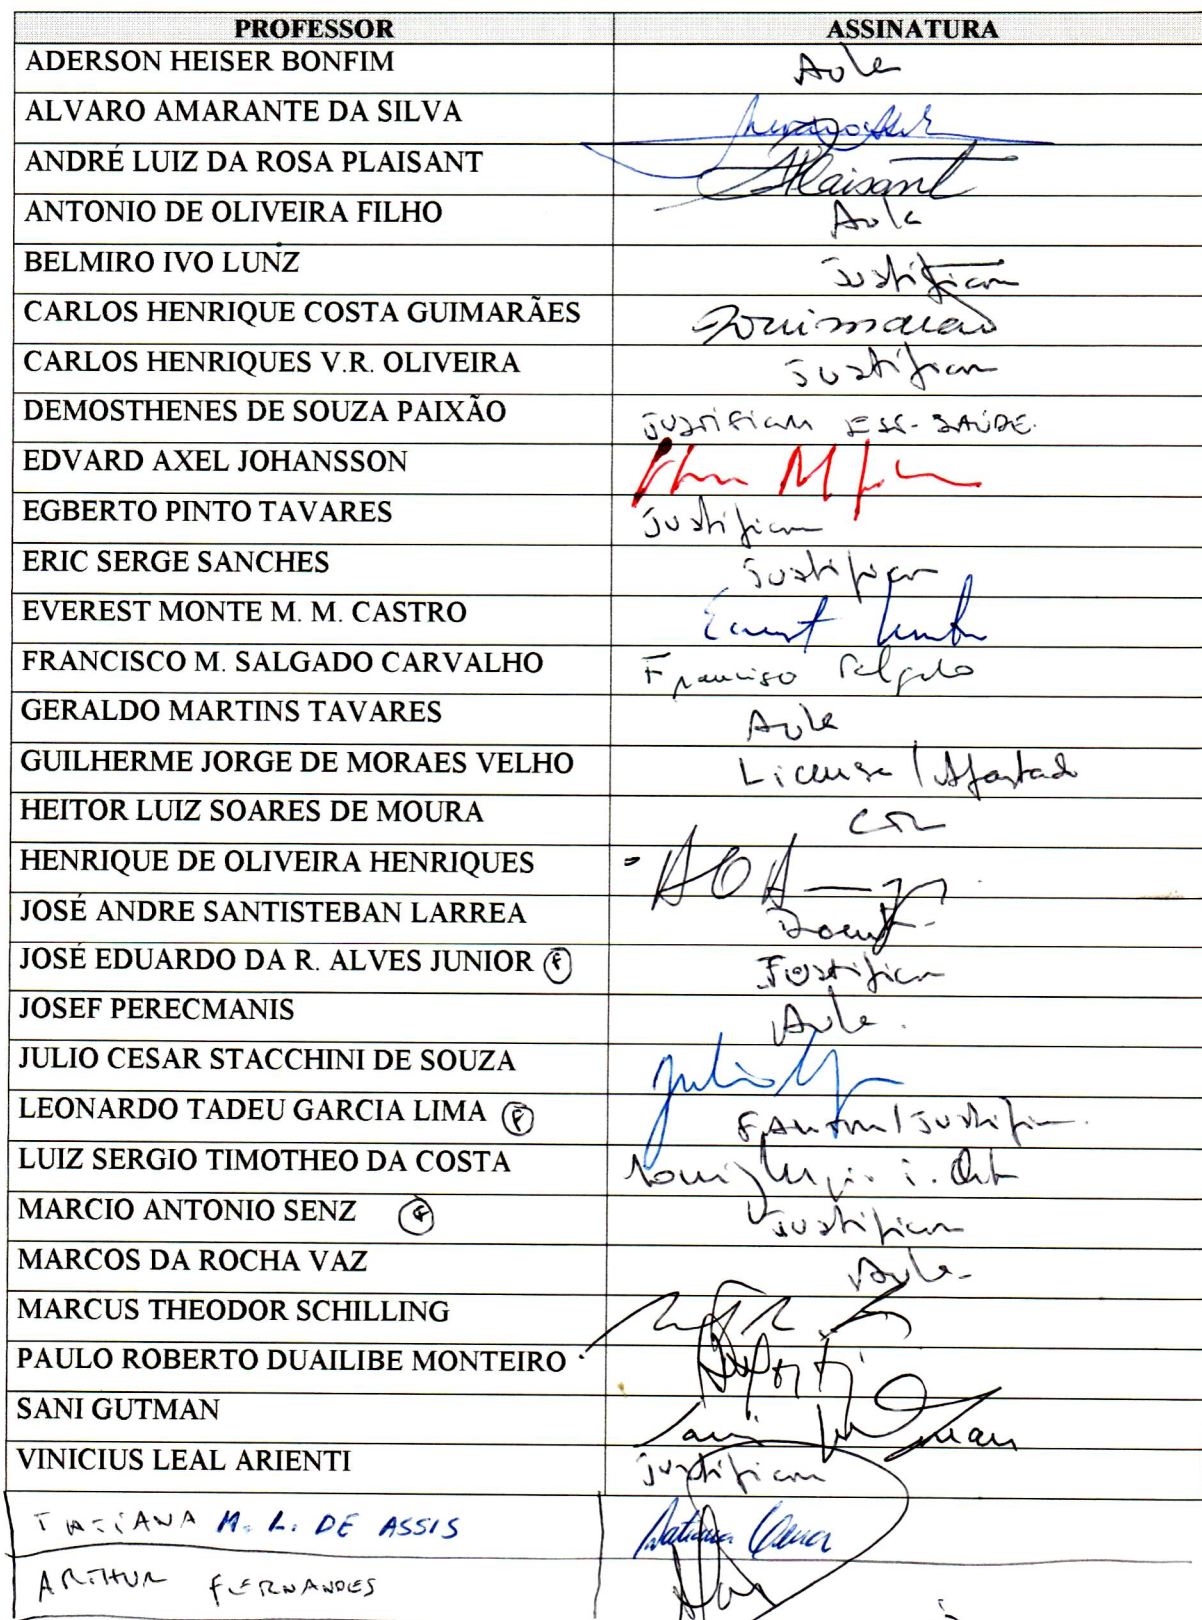 PROFESSOR ASSINATURA
ADERSON HEISER BONFIM Aula
ALVARO AMARANTE DA SILVA
ANDRÉ LUIZ DA ROSA PLAISANT APlaisant
ANTONIO DE OLIVEIRA FILHO Aula
BELMIRO IVO LUNZ Justificam
CARLOS HENRIQUE COSTA GUIMARÃES Guimarães
CARLOS HENRIQUES V.R. OLIVEIRA Justificam
DEMOSTHENES DE SOUZA PAIXÃO JUSTIFICAM SAÚDE
EDVARD AXEL JOHANSSON
EGBERTO PINTO TAVARES Justificam
ERIC SERGE SANCHES Justificam
EVEREST MONTE M. M. CASTRO
FRANCISCO M. SALGADO CARVALHO Francisco Salgado
GERALDO MARTINS TAVARES Aula
GUILHERME JORGE DE MORAES VELHO Licença / Afastado
HEITOR LUIZ SOARES DE MOURA
HENRIQUE DE OLIVEIRA HENRIQUES
JOSÉ ANDRE SANTISTEBAN LARREA
JOSÉ EDUARDO DA R. ALVES JUNIOR (F) Justificam
JOSEF PERECMANIS Aula.
JULIO CESAR STACCHINI DE SOUZA Julio
LEONARDO TADEU GARCIA LIMA (F)
LUIZ SERGIO TIMOTHEO DA COSTA
MARCIO ANTONIO SENZ (F) Justificam
MARCOS DA ROCHA VAZ Aula
MARCUS THEODOR SCHILLING
PAULO ROBERTO DUAILIBE MONTEIRO
SANI GUTMAN Sani Gutman
VINICIUS LEAL ARIENTI Justificam
TATIANA M. L. DE ASSIS Tatiana
ARTHUR FERNANDES